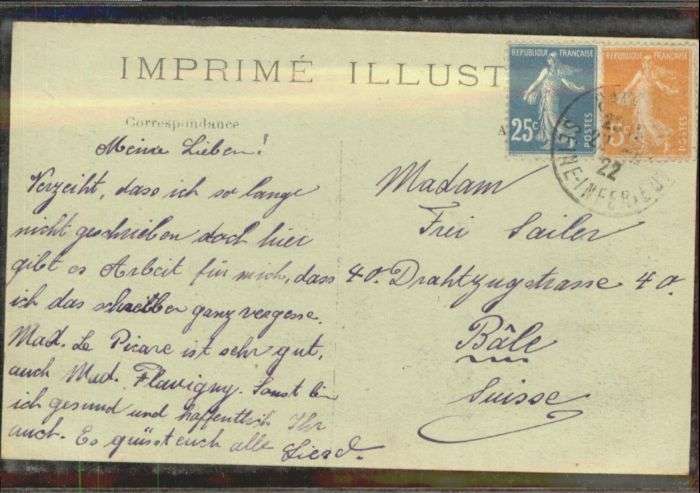 IMPRIMÉ ILLUST
Correspondance
A
RÉPUBLIQUE FRANÇAISE
25c
POSTES
RÉPUBLIQUE FRANÇAISE
5c
POSTES
22
SEINE-INFERIEURE
Meine Lieben!
Verzeiht, dass ich so lange
nicht geschrieben doch hier
gibt es Arbeit für mich, dass
ich das schreiben ganz vergesse.
Mad. Le Picare ist sehr gut,
auch Mad. Flavigny. Sonst bin
ich gesund und hoffentlich Ihr
auch. Es grüsst euch alle
Madam
Frei Sailer
40. Drahtzugstrasse 40.
Bâle
Suisse